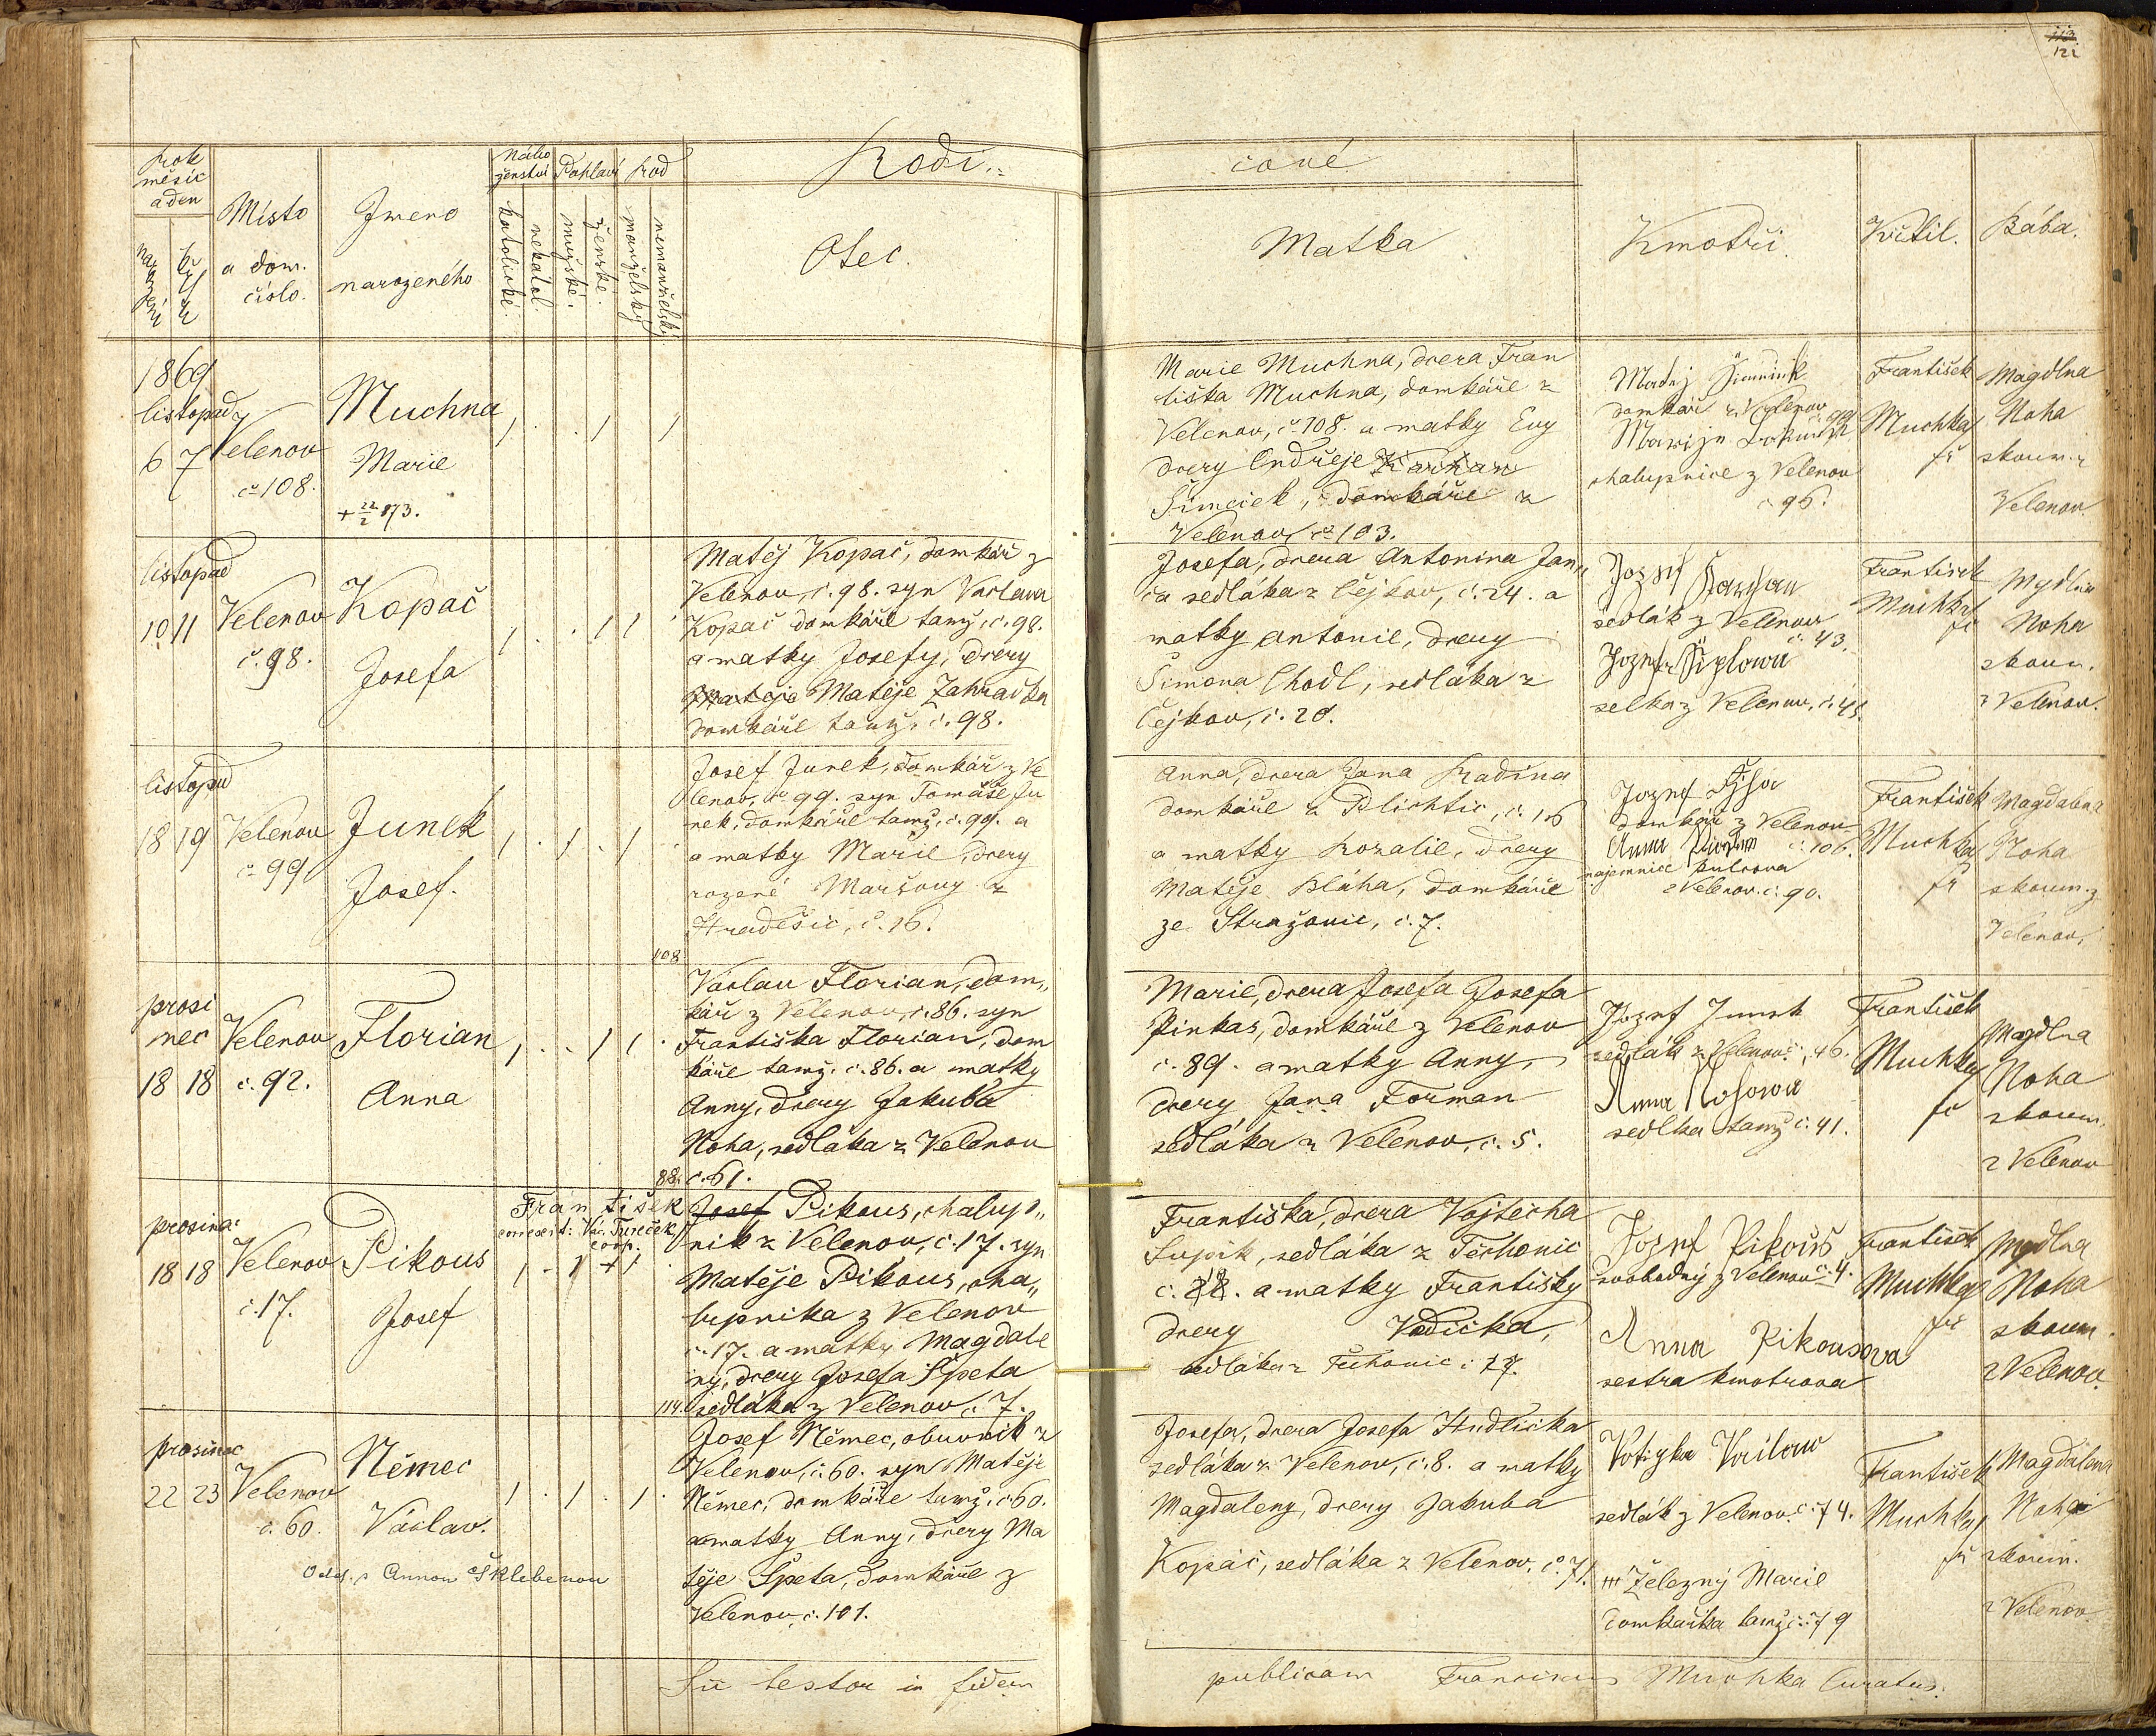 122
Rok
měsíc
a den
Místo
a dom.
číslo.
Jmeno
narozeného
Nábo
ženství
katolické.
nekatol.
Pohlaví
mužské.
ženské.
Rod
manželský
nemanželský.
Rodi„
čové
Otec.
Matka
Kmotři.
Křtil.
Bába.
1869
listopad
6 7
Velenov
č. 108.
Muchna
Marie
+ 22/2 873.
Marie Muchna, dcera Fran
tiška Muchna, domkáře z
Velenov, č. 108. a matky Evy
dcery Ondřeje
Šimeček, domkáře z
Velenov, č. 103.
Matěj
domkář z Velenov
č. 99
chalupnice z Velenov
č 96.
František
Muchka
fř
Magdlna
Noha
zkoum. z
Velenov.
listopad
10 11
Velenov
č. 98.
Kopač
Josefa
Matěj Kopač, domkář z
Velenov, č. 98. syn Vaclava
Kopač domkáře tamž, č. 98.
a matky Josefy, dcery
Matěje Zahradka
domkáře tamž, č. 98.
Josefa, dcera Antonina Jan„
ča sedláka z Čejkov, č. 24. a
matky Antonie, dcery
Šimona Chodl, sedláka z
Čejkov, č. 20.
Jozef
sedlák z Velenov
č. 43.
selka z Velenov, č. 45.
František
Muchka
fř
Mgdlna
Noha
zkoum.
z Velenov.
listopad
18 19
Velenov
č 99
Junek
Josef.
Josef Junek, domkář z Ve
lenov, č. 99. syn Tomáše Ju
nek, domkáře tamž, č. 99. a
a matky Marie, dcery
rozené Maršovy z
Hradešic, č. 16.
Anna, dcera Jana Kadina
domkáře z Plichtic, č. 16
a matky Rozalie, dcery
Matěje Bláha, domkáře
ze Stražovic, č. 7.
Jozef
domkář z Velenov
č. 106.
Anna
najemnice
z Velenov. č. 90.
František
Muchka
fř
Magdalena
Noha
zkoum. z
Velenov.
108
prosi
nec
18 18
Velenov
č. 92.
Florian
Anna
Václav Florian, dom„
kář z Velenov, č. 86. syn
Františka Florian, dom
káře tamž. č. 86. a matky
Anny, dcery Jakuba
Noha, sedláka z Velenov
č. 61.
Marie, dcera Josefa Josefa
Pinkas, domkáře z Velenov
č. 89. a matky Anny,
dcery Jana Forman
sedláka z Velenov, č. 5.
Jozef Junek
sedlák z Velenov č. 46.
Anna Nohowa
sedlka tamž č. 41.
František
Muchka
fř
Magdlna
Noha
zkoum.
z Velenov
88.
prosinec
18 18
Velenov
č. 17.
Pikous
Josef
František
correxit: Vác. Tureček
coop.
Josef Pikous, chalup„
nik z Velenov, č. 17. syn
Matěje Pikous, cha„
lupnika z Velenov
č. 17. a matky Magdale
ny, dcery Josefa Špeta
sedláka z Velenov č. 7.
Františka, dcera Vojtecha
Supik, sedláka z Těchonic
č. a matky Františky
dcery Vodička,
sedláka z Těchonic č 17.
Jozef Pikouš
svobodný z Velenov č. 4.
Anna Pikousova
sestra kmotrova
František
Muchka
fř
Mgdlna
Noha
zkoum.
z Velenov.
114.
prosinec
22 23
Velenov
č. 60.
Němec
Václav.
Odd. s Annou Šklebenou
Josef Němec, obuvnik z
Velenov, č. 60. syn Matěje
Němec, domkáře tamž, č. 60.
a matky Anny, dcery Ma
těje Špeta, domkáře z
Velenov, č. 101.
Josefa, dcera Josefa Hudlička
sedláka z Velenov, č. 8. a matky
Magdaleny, dcery Jakuba
Kopáč, sedláka z Velenov. č. 71.
sedlák z Velenov. č. 74.
+++ Železný Marie
domkařka tamž č. 79
František
Muchka
fř
Magdalena
Noha
zkoum.
z Velenov.
Sic testor in fidem
publicam Franciscus Muchka Curatus.